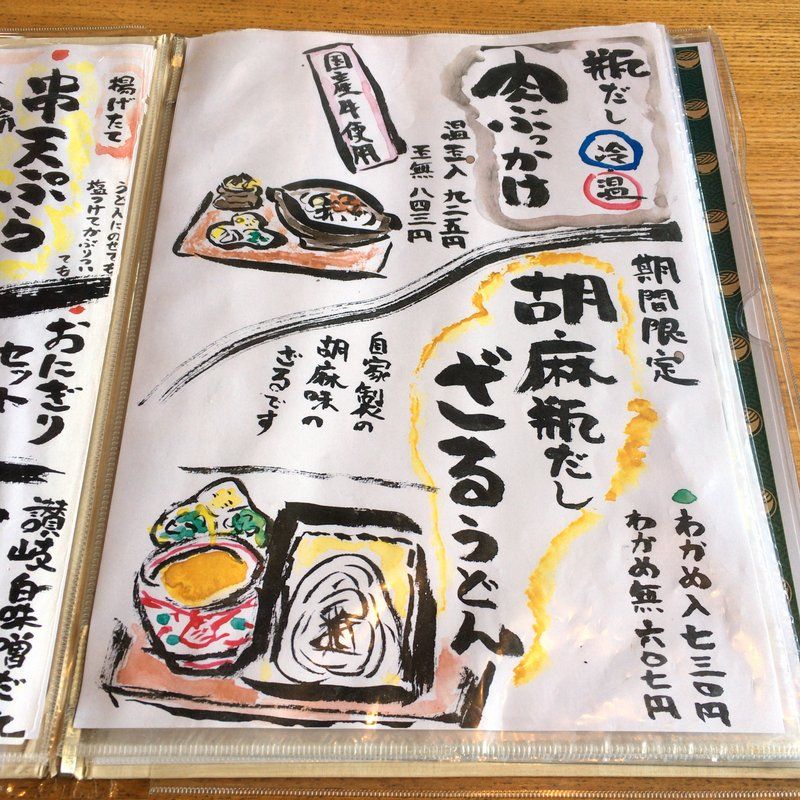 瓶だし 冷 温
肉ぶっかけ
温玉入 九二五円
玉無 八四三円
国産牛使用
期間限定
胡麻瓶だし
ざるうどん
自家製の
胡麻味の
ざるです
わかめ入 七三〇円
わかめ無 六〇七円
揚げたて
串天ぷら
うどんにのせても
塩つけてかぶりつい
ても
おにぎり
セット
讃岐白味噌だし